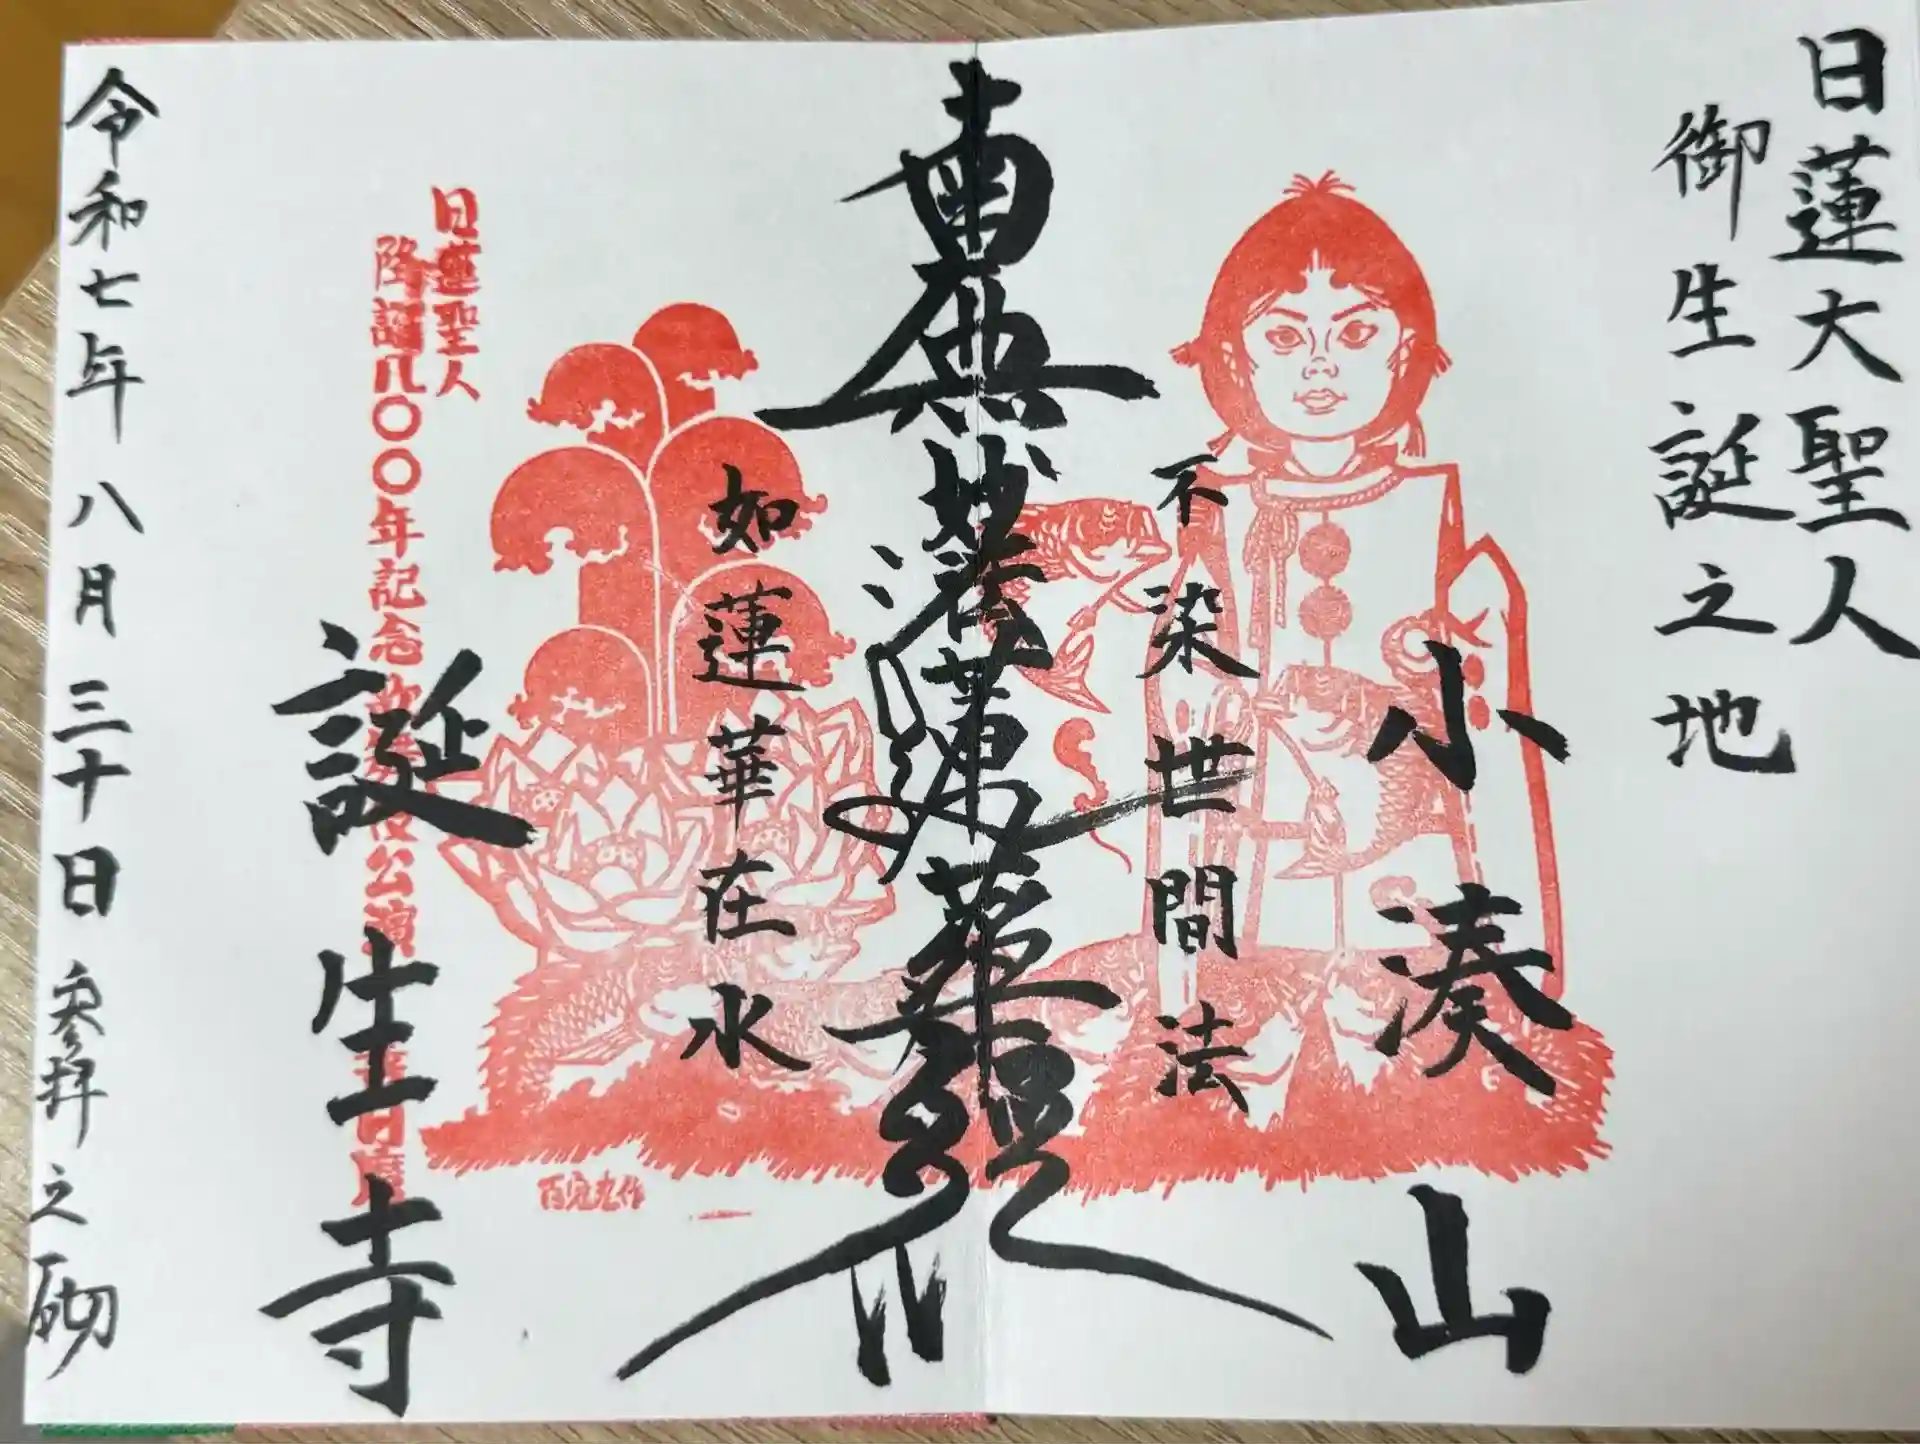 日蓮大聖人
御生誕之地
小湊山
不染世間法
南無妙法蓮華経
如蓮華在水
日蓮聖人
降誕八〇〇年記念
公演
誕生寺
令和七年八月三十日参拝之砌